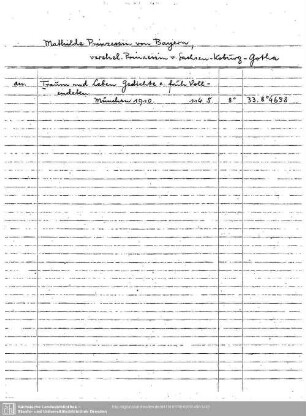 Mathilde Prinzessin von Bayern,
verehel. Prinzessin v. Sachsen-Koburg-Gotha
Traum und Leben Gedichte e. früh Voll-
endeten
München 1910. 114 S 8° 33.8°4698
Sächsische Landesbibliothek -
Staats- und Universitätsbibliothek Dresden